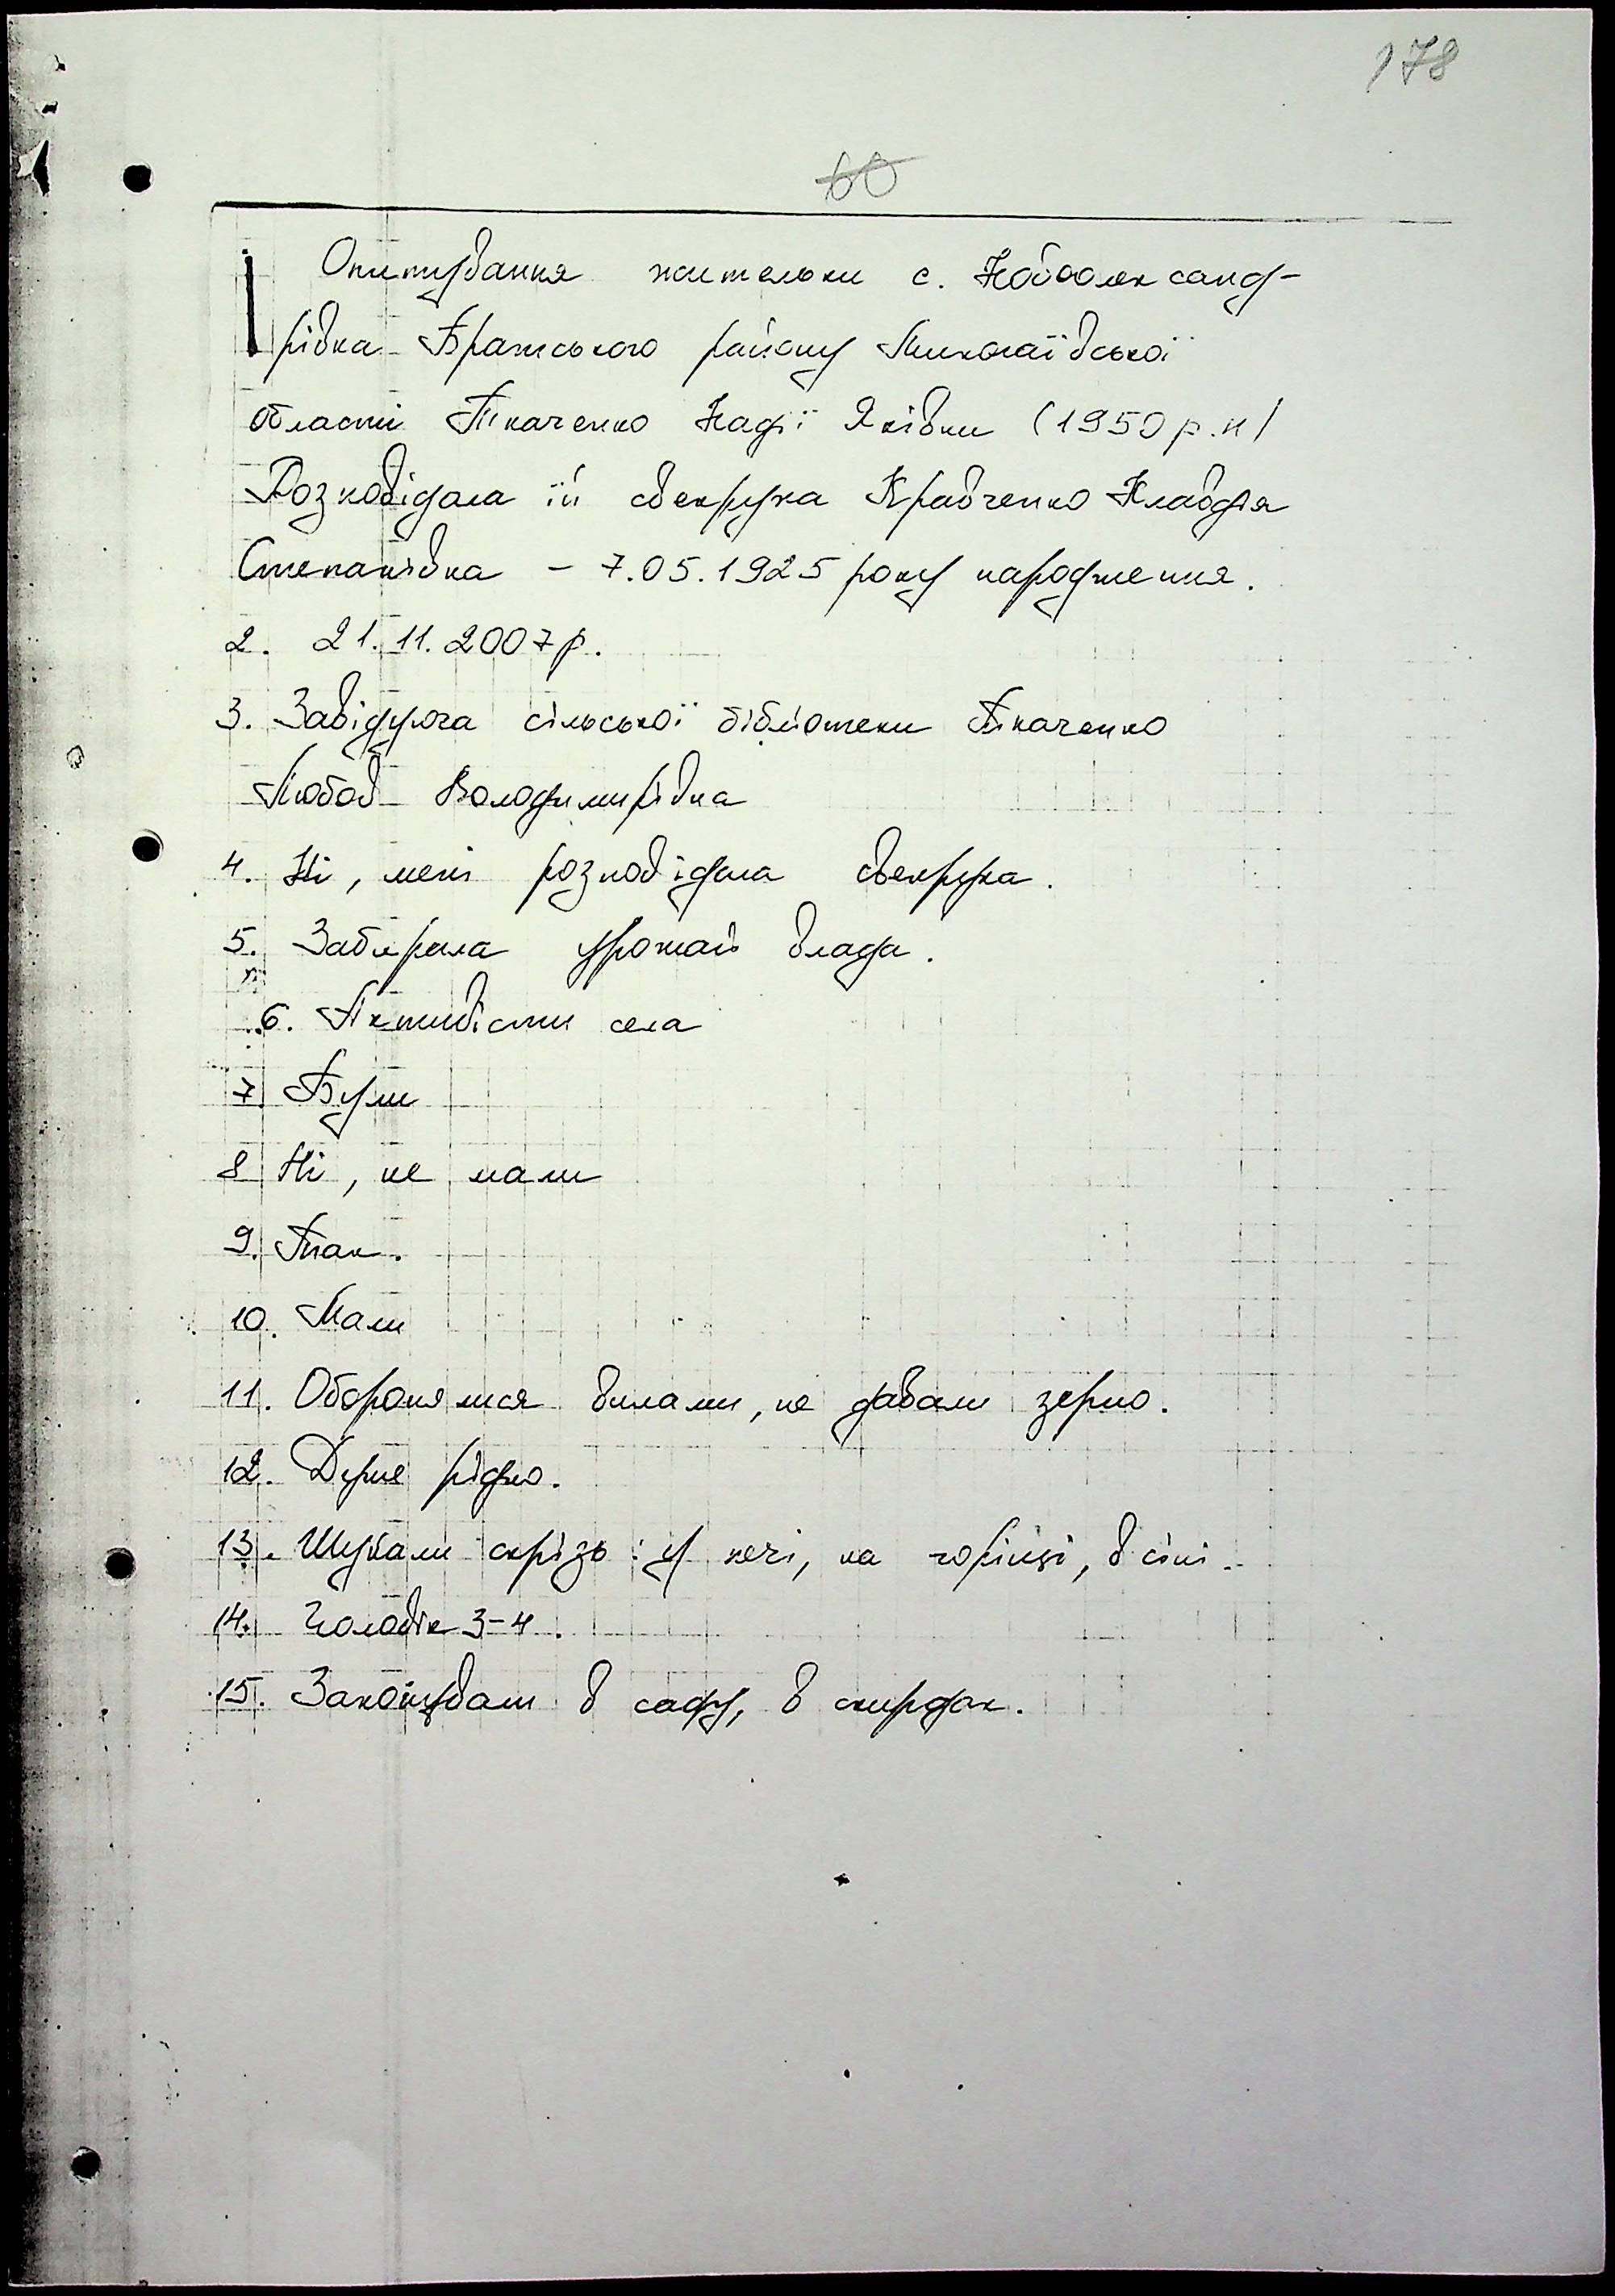 178
60
Опитування жительки с. Новоолександ-
рівка Братського району Миколаївської
області Ткаченко Надії Яківни (1950 р.н)
Розповідала їй свекруха Кравченко Клавдія
Степанівна - 7.05.1925 року народження.
2. 21.11.2007р.
3. Завідуюча сільської бібліотеки Ткаченко
Любов Володимирівна
4. Ні, мені розповідала свекруха.
5. Забирала урожай влада.
6. Активісти села
7. Були
8 Ні, не мали
9. Так.
10. Мали
11. Оборонялися вилами, не давали зерно.
12. Дуже рідко.
13. Шукали скрізь: у печі, на горищі, в сіні.
14. Чоловік 3-4.
15. Закопували в саду, в скирдах.